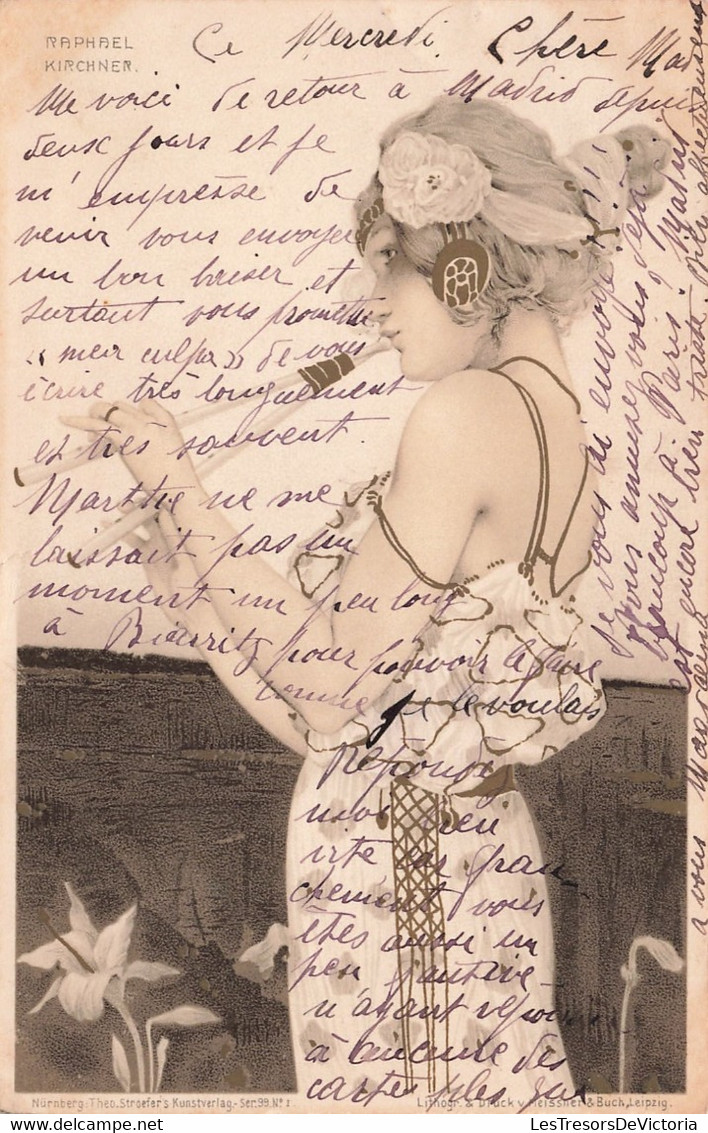 RAPHAEL
KIRCHNER.
Ce Mercredi. Chère
Me voici de retour à Madrid depuis
deux jours et je
m'empresse de
venir vous envoyer
un bon baiser et
surtout vous promettre
« mea culpa » de vous
écrire très longuement
et très souvent.
Marthe ne me
laissait pas un
moment un peu long
à Biarritz pour pouvoir le faire
comme je le voulais
Répondez
moi bien
vite car fran-
chement vous
êtes aussi un
peu fautive
n'ayant répondu
à aucune des
cartes
je vous ai envoyé !!!!
Vous amusez vous déjà
beaucoup à Paris? Madrid
est encore bien triste. Bien affectueusement
à vous
Nürnberg: Theo. Stroefer's Kunstverlag.- Ser. 99. Nº 1.
Lithogr. & Druck v. Meissner & Buch, Leipzig.
LesTresorsDeVictoria